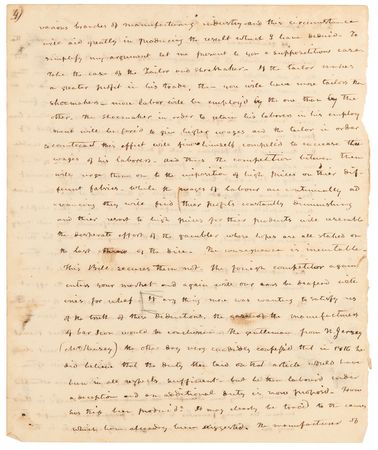 4)
various branches of manufacturing industry and this circumstance
will aid greatly in producing the result which I have decided. To
simplify my argument let me present to you a supposititious case.
Take the case of the Tailor and Shoemaker. If the tailor makes
a greater profit in his trade, than you will have more tailors than
Shoemakers — more labor will be employed by the one than by the
other. The Shoemaker in order to retain his laborers in his employ
ment will be forc'd to give higher wages and the tailor in order
to counteract this effect will find himself compelled to increase the
wages of his laborers. And thus the competition between them
will urge them on to the imposition of high prices on their dif
ferent fabrics. While the wages of labour are continually ad
vancing they will find their profits constantly diminishing
and their resort to high prices for their products will resemble
the desperate effort of the gambler whose hopes are all staked on
the last throw of the dice. The consequence is inevitable.
This Bill secures them not. The foreign competitor again
enters your market and again will our ears be
cries for relief. If any thing more was wanting to satisfy us
of the truth of these deductions, the case of the manufacturers
of bar Iron would be conclusive. The gentleman from N. Jersey
the other day very candidly confess'd that in 1816 he
did believe that the duty then laid on that article would have
been in all respects sufficient — but he then laboured under
a deception and an additional duty is now proposed. How
has this been produced? It may clearly be traced to the causes
which have already been suggested. The manufacturer of